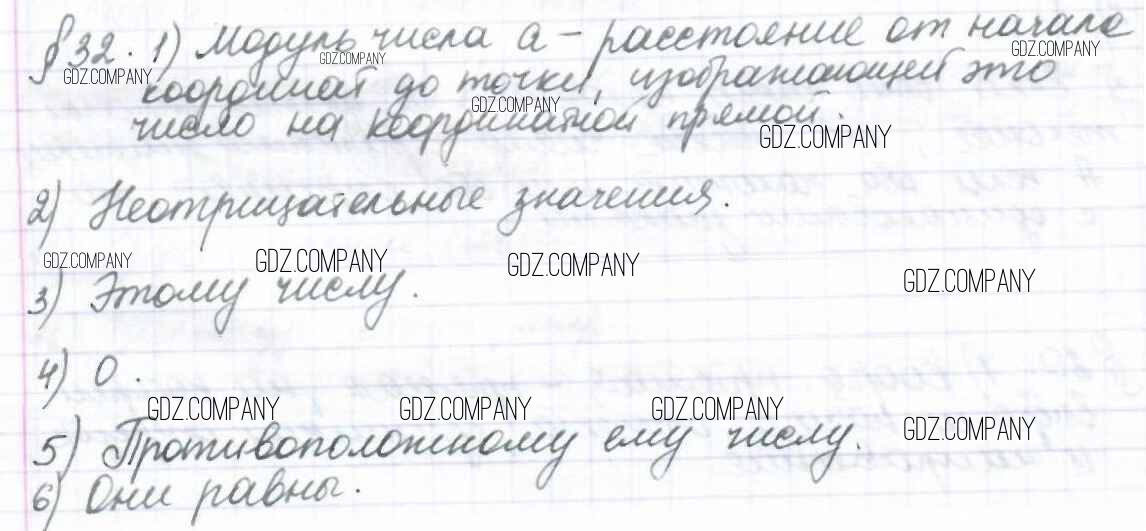 §32. 1) Модуль числа a – расстояние от начала
GDZ.COMPANY GDZ.COMPANY GDZ.COMPANY
координат до точки, изображающей это
GDZ.COMPANY
число на координатной прямой.
GDZ.COMPANY
2) Неотрицательные значения.
GDZ.COMPANY GDZ.COMPANY GDZ.COMPANY GDZ.COMPANY
3) Этому числу.
4) 0.
GDZ.COMPANY GDZ.COMPANY GDZ.COMPANY GDZ.COMPANY
5) Противоположному ему числу.
6) Они равны.